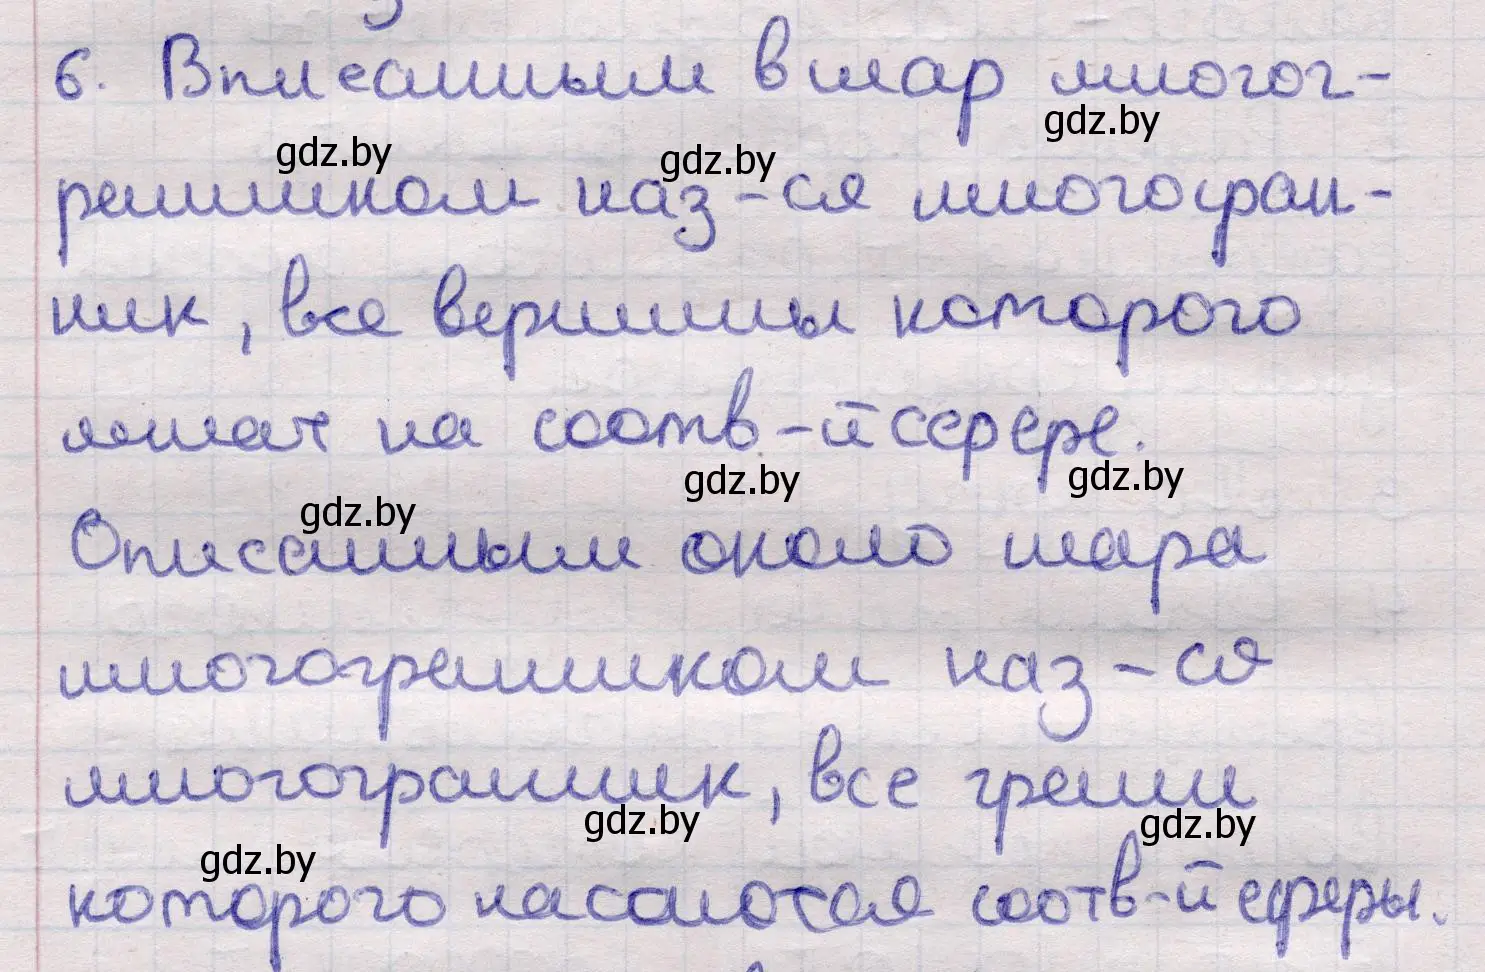 6. Вписанным в шар многог-
gdz.by
gdz.by gdz.by
ранником наз-ся многогран-
ник, все вершины которого
лежат на соотв-й сфере.
gdz.by gdz.by
gdz.by
Описанным около шара
многогранником наз-ся
многогранник, все грани
gdz.by gdz.by
gdz.by
которого касаются соотв-й сферы.